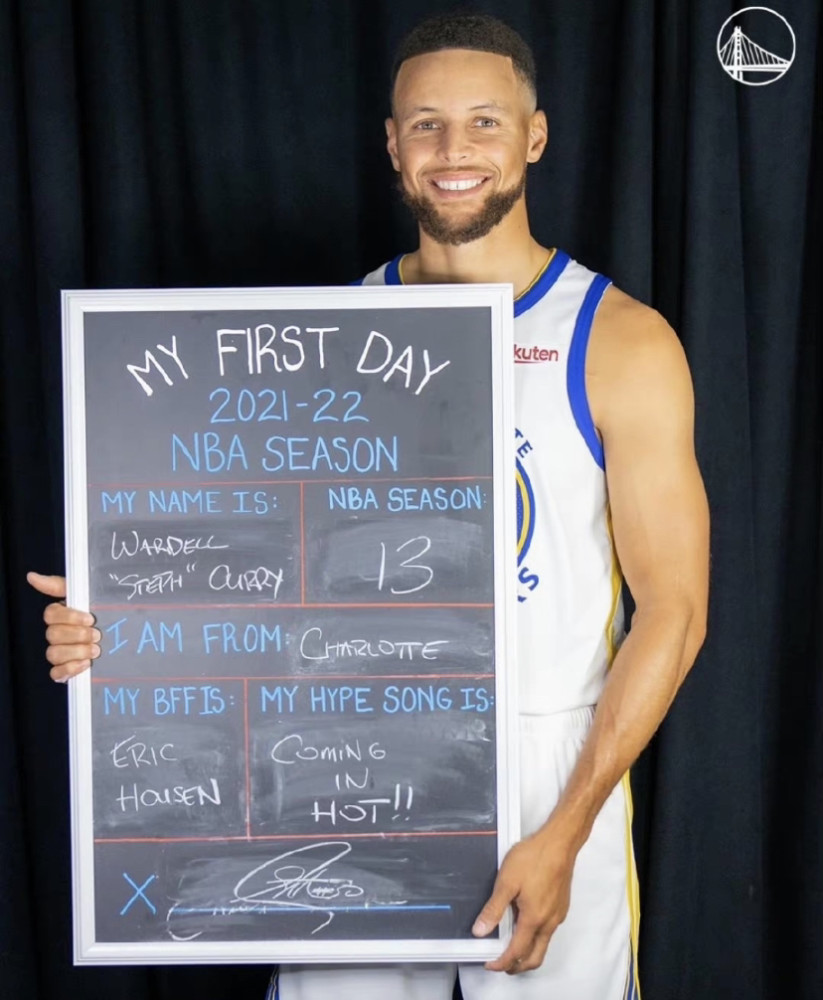 MY FIRST DAY
2021-22
NBA SEASON
MY NAME IS:
WARDELL
"STEPH" CURRY
NBA SEASON:
13
I AM FROM: CHARLOTTE
MY BFF IS:
ERIC
HOUSEN
MY HYPE SONG IS:
COMING
IN
HOT!!
X
kuten